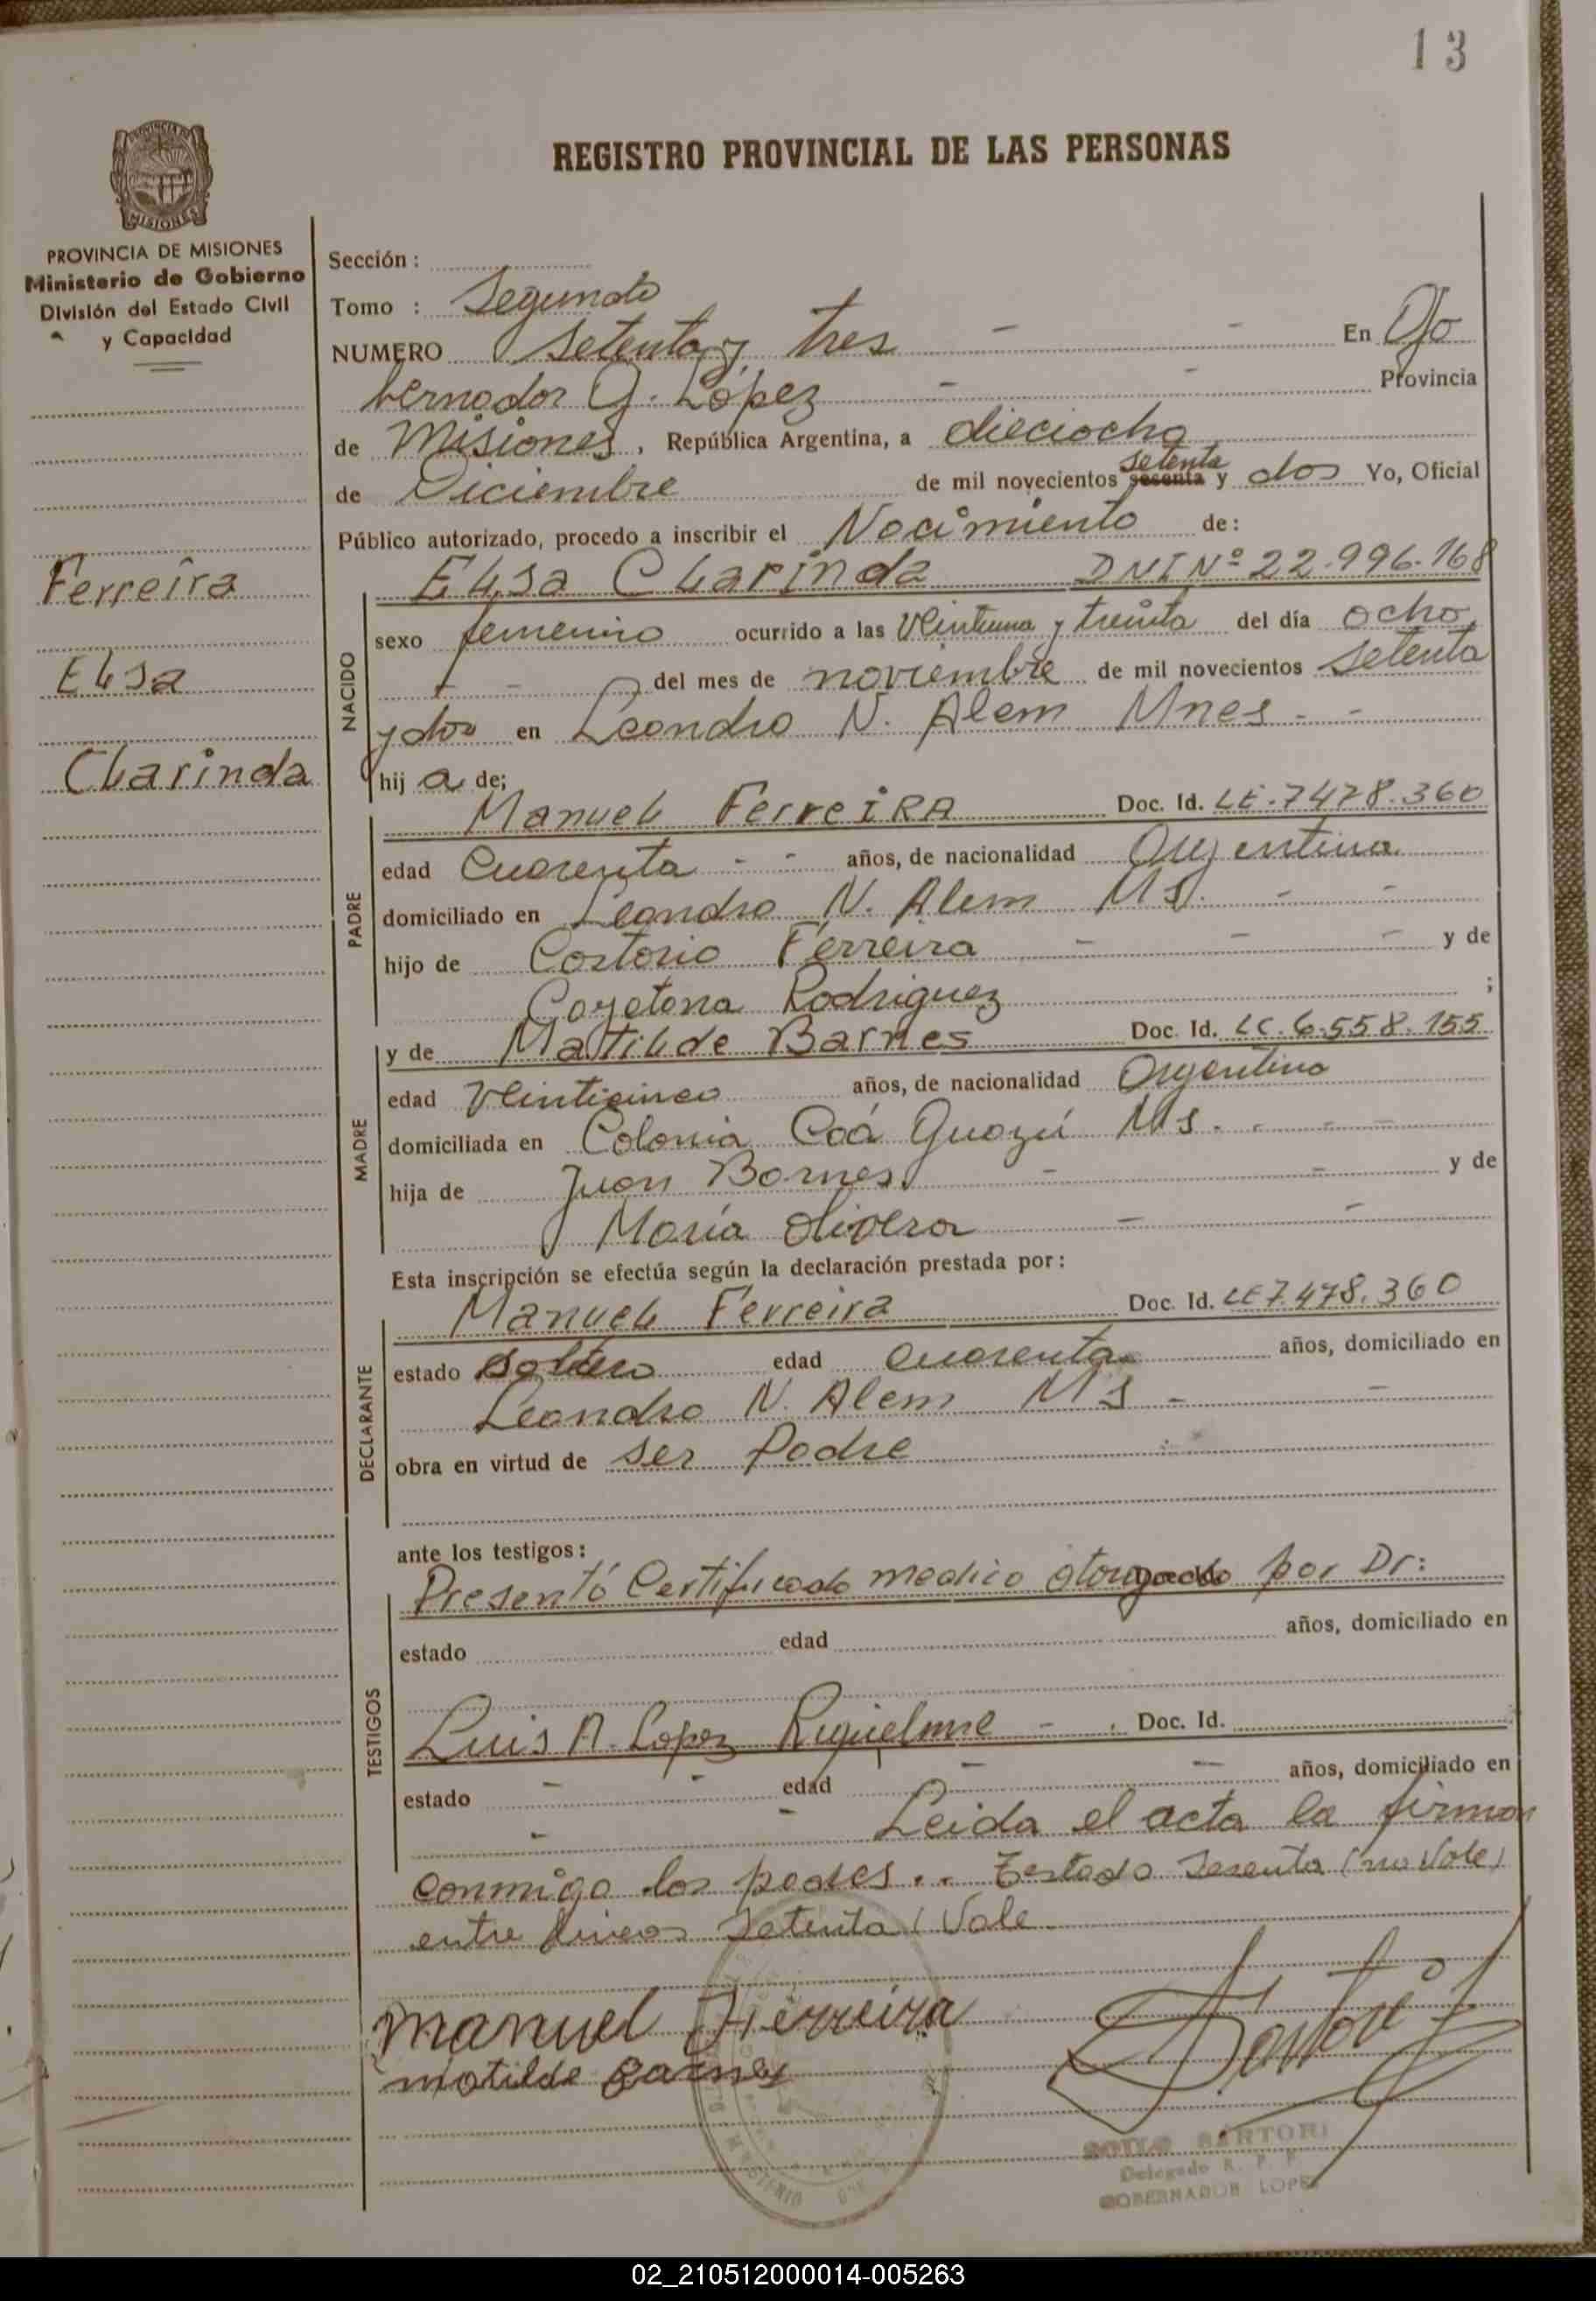 13
REGISTRO PROVINCIAL DE LAS PERSONAS
PROVINCIA DE MISIONES
Ministerio de Gobierno
División del Estado Civil
y Capacidad
Ferreira
Elsa
Clarinda
Sección :
Tomo : Segundo
NUMERO Setenta y tres - - En Go
bernador G. López - - Provincia
de Misiones, República Argentina, a dieciocho
setenta
de Diciembre de mil novecientos sesenta y dos Yo, Oficial
Público autorizado, procedo a inscribir el Nacimiento de:
Elsa Clarinda DNI Nº 22.996.168
NACIDO
sexo femenino ocurrido a las Veintiuna y treinta del día ocho
- - del mes de noviembre de mil novecientos setenta
y dos en Leandro N. Alem Mnes - -
hij a de;
PADRE
Manuel Ferreira Doc. Id. LE.7478.360
edad Cuarenta - - años, de nacionalidad Argentina
domiciliado en Leandro N. Alem Ms. - -
hijo de Ferreira - - - y de
Cayetana Rodriguez ;
MADRE
y de Matilde Barnes Doc. Id. LC.6.558.155
edad Veinticinco años, de nacionalidad Argentina
domiciliada en Colonia Caá Guazú Ms. - - -
hija de Juan Barnes - - y de
María Olivera - -
Esta inscripción se efectúa según la declaración prestada por:
DECLARANTE
Manuel Ferreira Doc. Id. LE7.478.360
estado Soltero edad Cuarenta años, domiciliado en
Leandro N. Alem Ms - -
obra en virtud de ser Padre
ante los testigos:
TESTIGOS
Presentó Certificado medico otorgado por Dr:
estado edad años, domiciliado en
Luis A. Lopez Riquelme - . Doc. Id.
estado - - edad - - años, domiciliado en
- - Leida el acta la firman
conmigo los padres.. Testado Sesenta (no Vale)
entre lineas Setenta/Vale
Manuel Ferreira
matilde Barnes
SARTORI
Delegado R. P. P.
GOBERNADOR LOPEZ
02_210512000014-005263